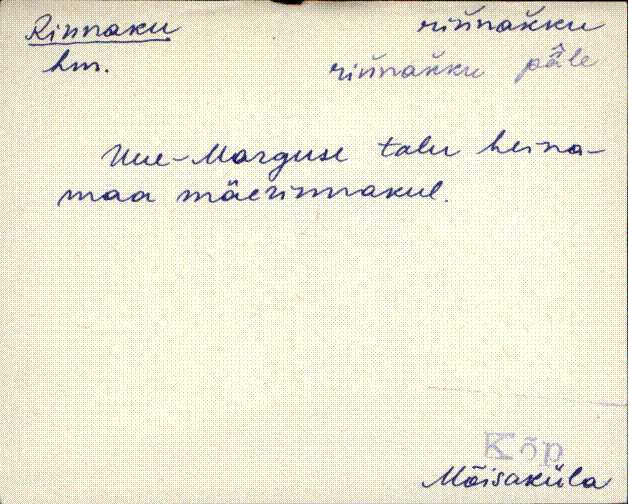 Rinnaku rin̆nak̆ku
hm. rin̆nak̆ku pä̭le
Uue-Marguse talu heina-
maa mäerinnakul.
Kõp
Mõisaküla